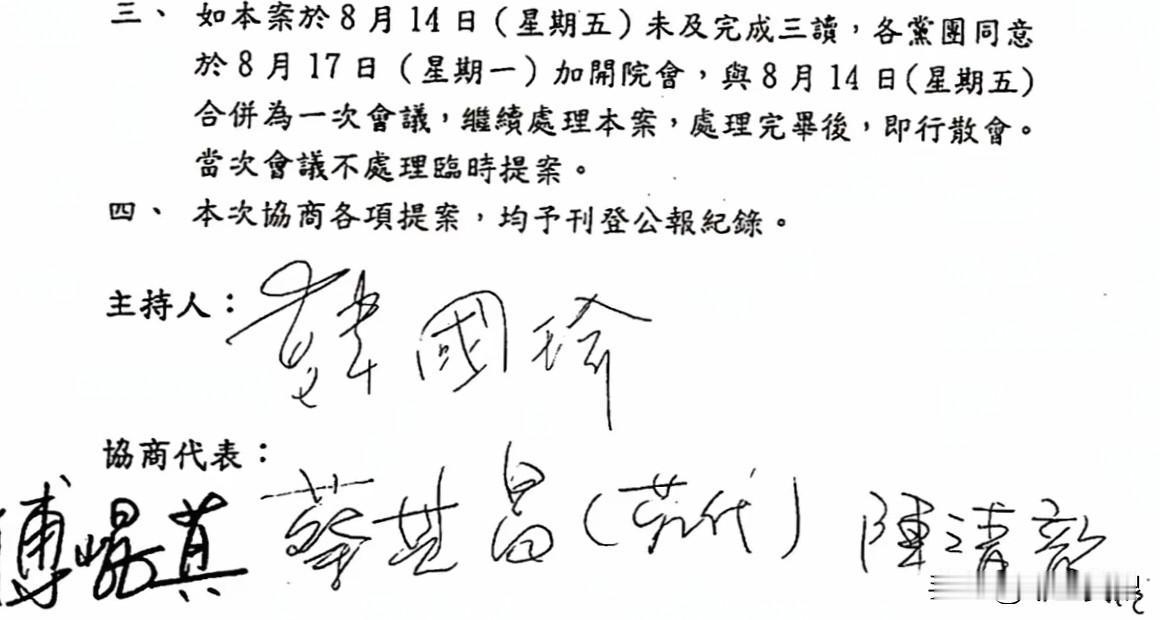 三、 如本案於8月14日(星期五)未及完成三讀，各黨團同意
於8月17日(星期一)加開院會，與8月14日(星期五)
合併為一次會議，繼續處理本案，處理完畢後，即行散會。
當次會議不處理臨時提案。
四、 本次協商各項提案，均予刊登公報紀錄。
主持人：
韓國瑜
協商代表：
傅崐萁 蔡其昌(范代) 陳清龍